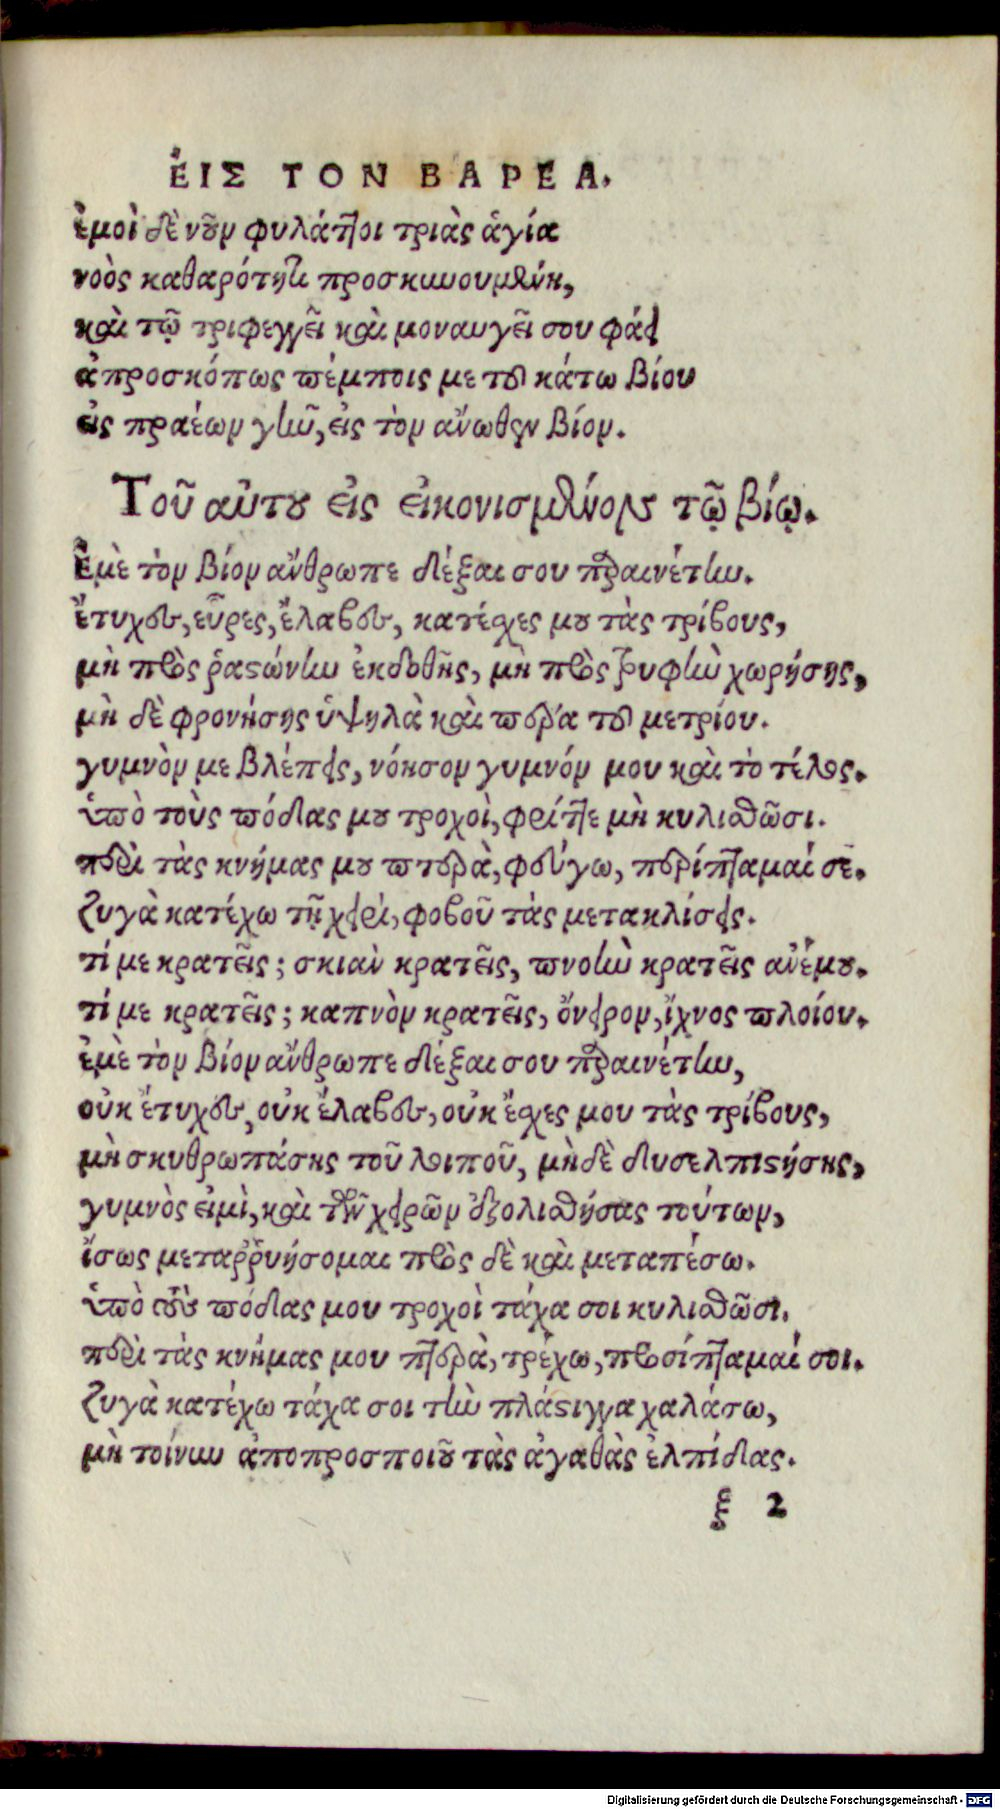 ἘΙΣ ΤΟΝ ΒΑΡΕΑ.
ἐμοὶ δὲ νοῦν φυλάττοι τριὰς ἁγία
νοὸς καθαρότητι προσκυνουμένη,
καὶ τῷ τριφεγγεῖ καὶ μοναυγεῖ σου φάει
ἀπροσκόπως πέμποις με τοῦ κάτω βίου
εἰς πραέων γῆν, εἰς τὸν ἄνωθεν βίον.
Τοῦ αὐτοῦ εἰς εἰκονισμένον τῷ βίῳ.
Ἐμὲ τὸν βίον ἄνθρωπε δέξαι σου παραινέτην.
ἔτυχες, εὗρες, ἔλαβες, κατέσχες μου τὰς τρίβους,
μὴ πρὸς ῥαστώνην ἐκδοθῇς, μὴ πρὸς τρυφὴν χωρήσῃς,
μὴ δὲ φρονήσῃς ὑψηλὰ καὶ πέρα τοῦ μετρίου.
γυμνὸν με βλέπεις, νόησον γυμνόν μου καὶ τὸ τέλος.
ὑπὸ τοὺς πόδας μου τροχοὶ, φρίττε μὴ κυλισθῶσι.
περὶ τὰς κνήμας μου πτερὰ, φεύγω, περίπταμαί σε.
ζυγὰ κατέχω τῇ χειρὶ, φοβοῦ τὰς μετακλίσεις.
τί με κρατεῖς; σκιὰν κρατεῖς, πνοὴν κρατεῖς ἀνέμου.
τί με κρατεῖς; καπνὸν κρατεῖς, ὄνειρον, ἴχνος πλοίου.
ἐμὲ τὸν βίον ἄνθρωπε δέξαι σου παραινέτην,
οὐκ ἔτυχες, οὐκ ἔλαβες, οὐκ ἔσχες μου τὰς τρίβους,
μὴ σκυθρωπάσῃς τοῦ λοιποῦ, μὴ δὲ δυσελπιστήσῃς,
γυμνὸς εἰμὶ, καὶ τῶν χειρῶν ἐξολισθήσας τούτων,
ἴσως μεταῤῥυήσομαι πρὸς δὲ καὶ μεταπέσω.
ὑπὸ τοὺς πόδας μου τροχοὶ τάχα σοι κυλισθῶσι.
περὶ τὰς κνήμας μου πτερὰ, τρέχω, προσίπταμαί σοι.
ζυγὰ κατέχω τάχα σοι τὴν πλάστιγγα χαλάσω,
μὴ τοίνυν ἀποπροσποιοῦ τὰς ἀγαθὰς ἐλπίδας.
ξ 2
Digitalisierung gefördert durch die Deutsche Forschungsgemeinschaft - DFG